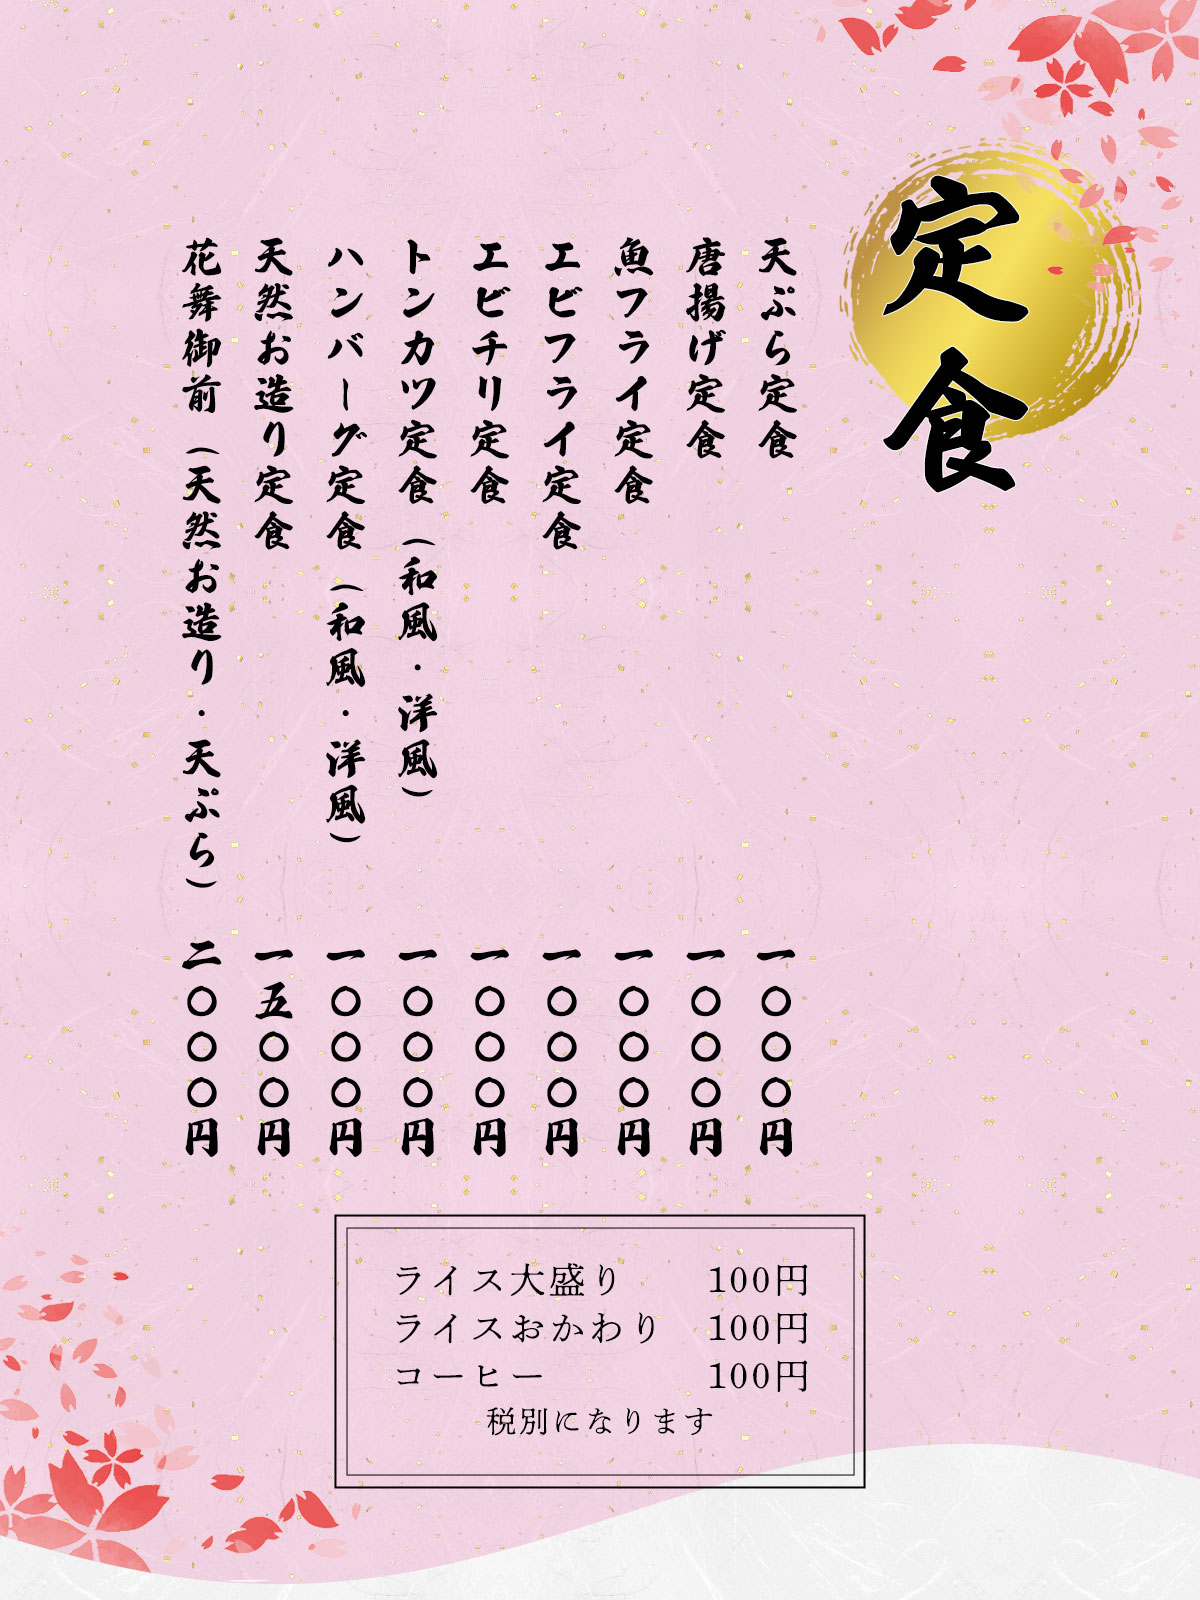 定食
天ぷら定食 一〇〇〇円
唐揚げ定食 一〇〇〇円
魚フライ定食 一〇〇〇円
エビフライ定食 一〇〇〇円
エビチリ定食 一〇〇〇円
トンカツ定食（和風・洋風） 一〇〇〇円
ハンバーグ定食（和風・洋風） 一〇〇〇円
天然お造り定食 一五〇〇円
花舞御前（天然お造り・天ぷら） 二〇〇〇円
ライス大盛り 100円
ライスおかわり 100円
コーヒー 100円
税別になります